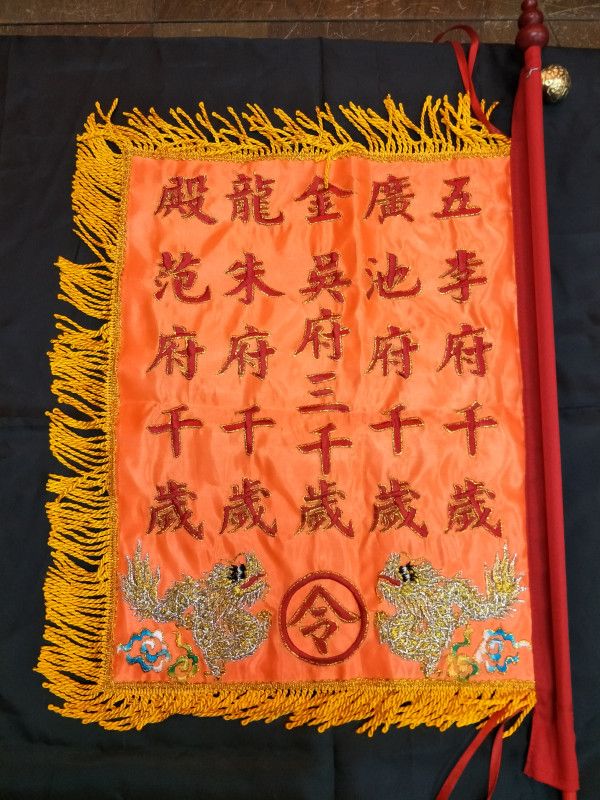 五廣金龍殿
李府千歲
池府千歲
吳府三千歲
朱府千歲
范府千歲
令